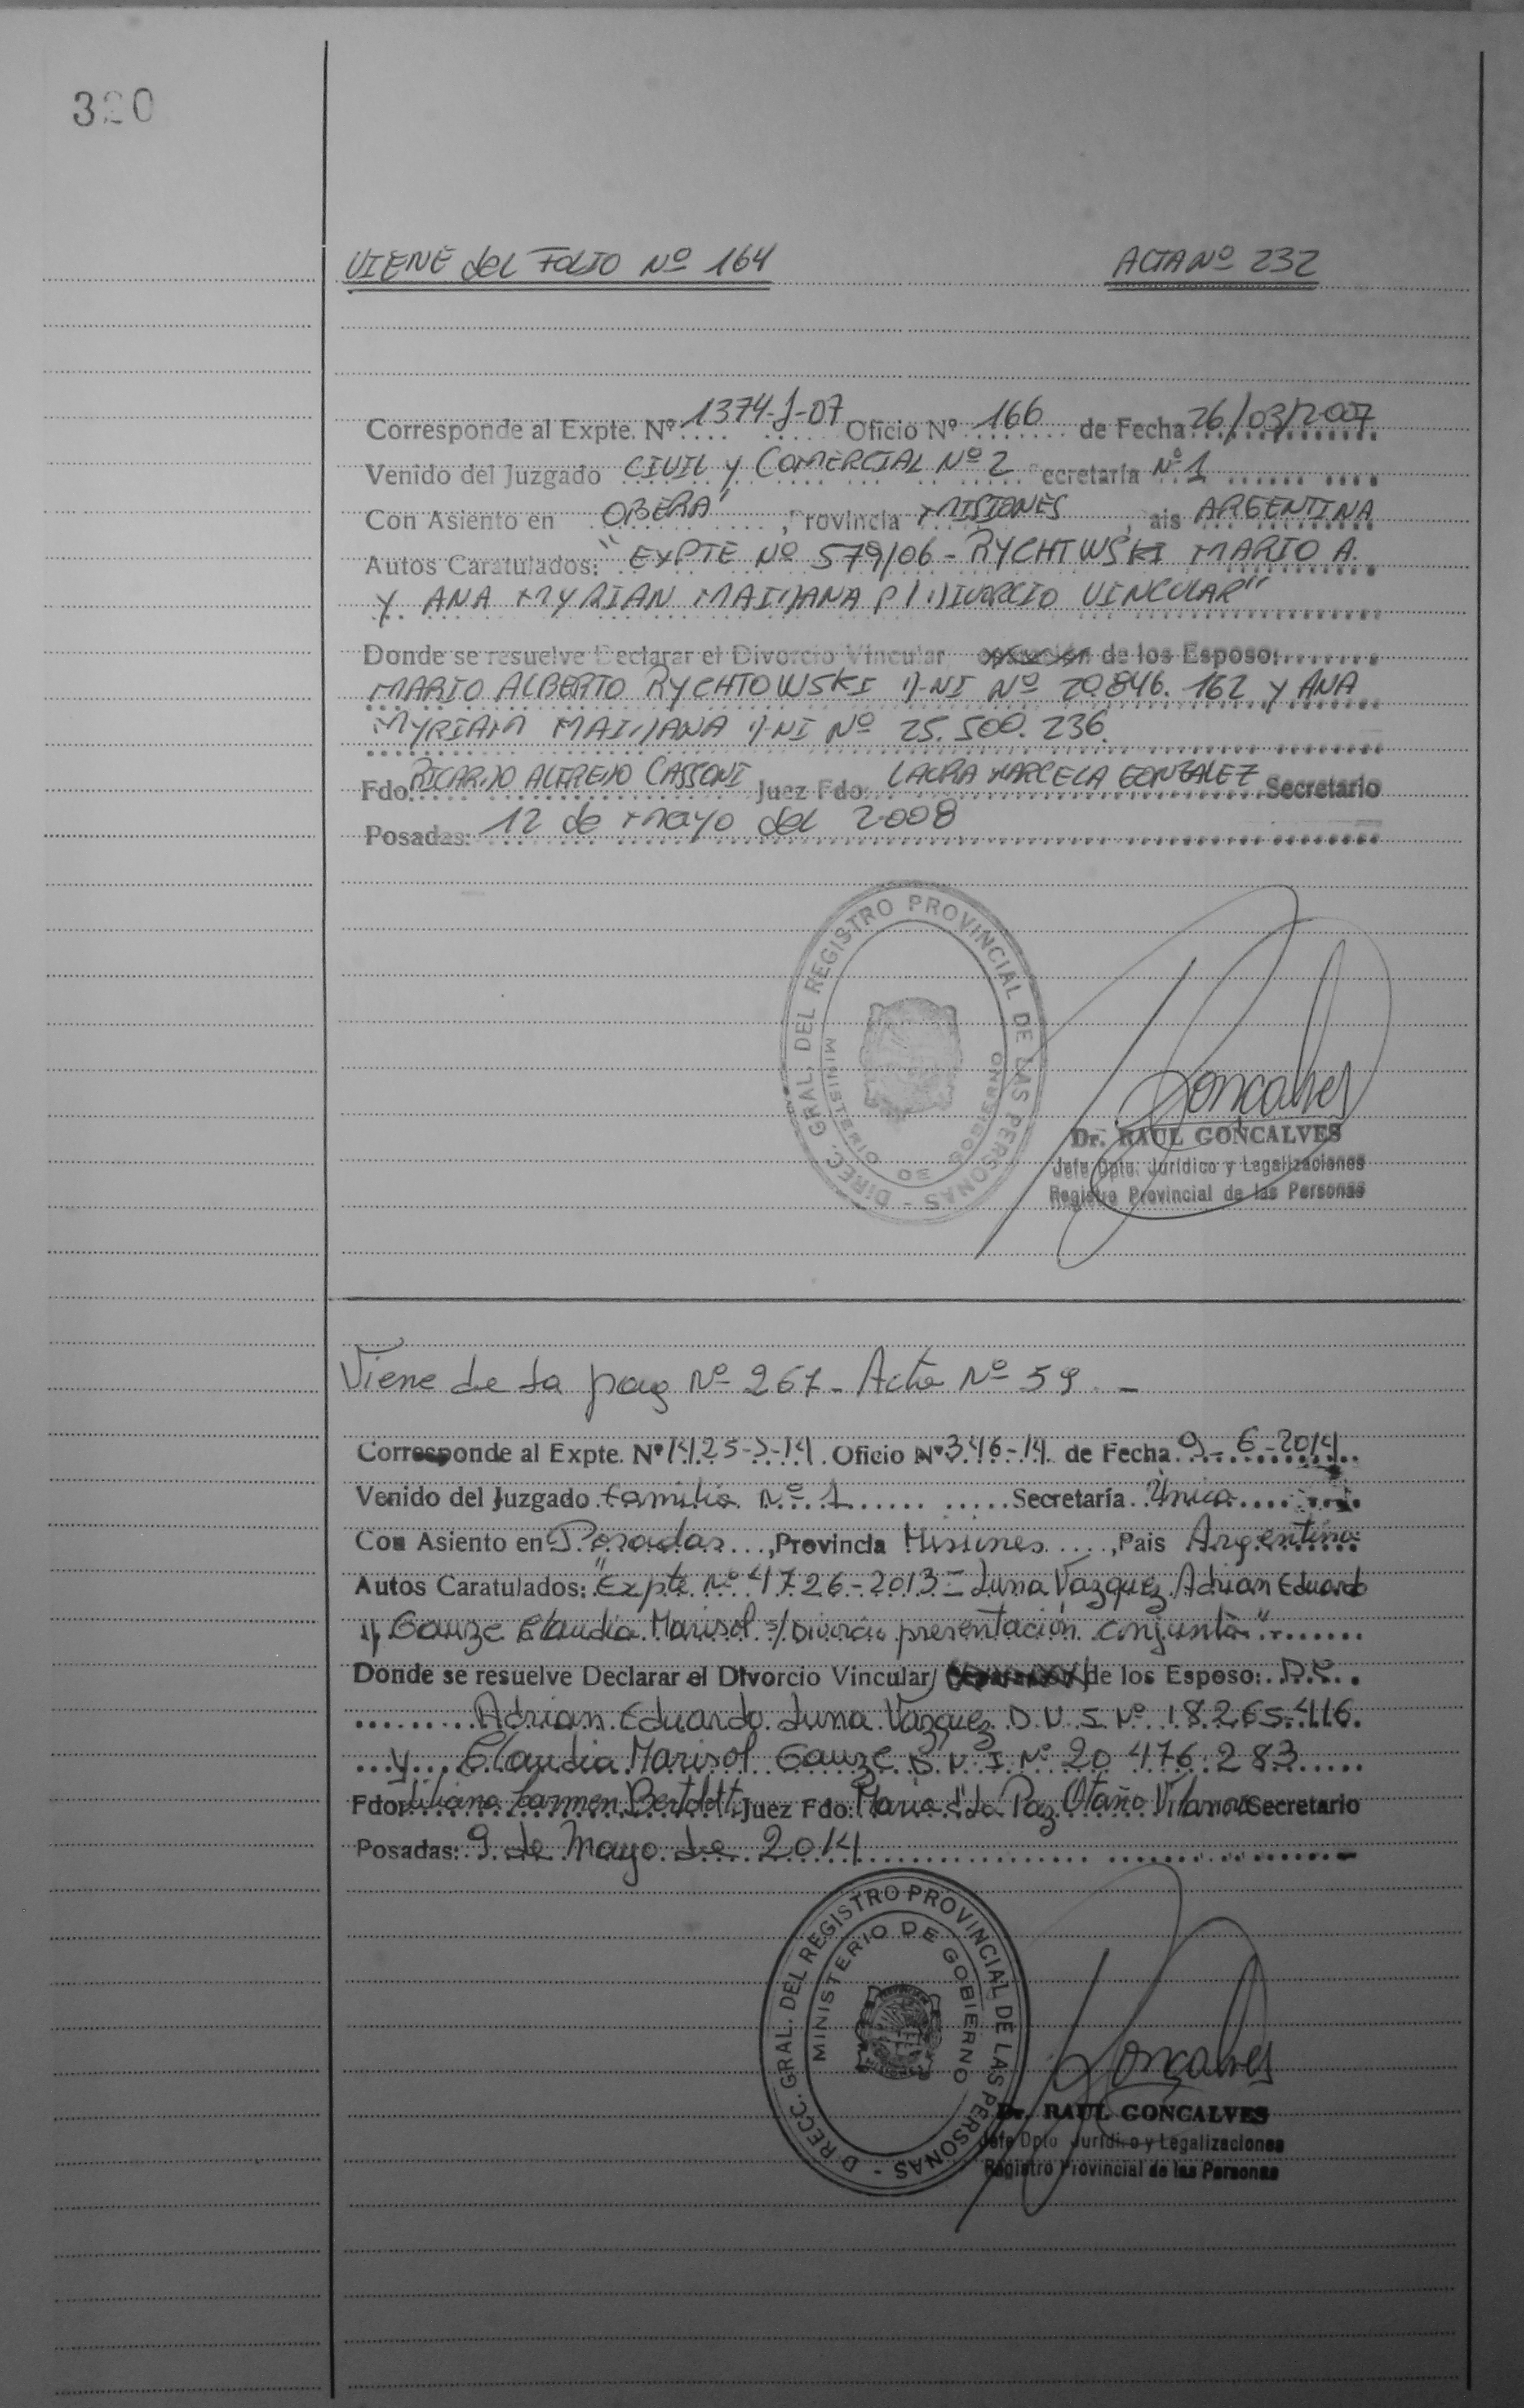 320
VIENE del FOLIO Nº 164 ACTA Nº 232
Corresponde al Expte. Nº 1374-J-07 Oficio Nº 166 de Fecha 26/03/2007
Venido del Juzgado CIVIL y COMERCIAL Nº 2 ecretaría Nº 1
Con Asiento en OBERA' , Provincia MISIONES , ais ARGENTINA
Autos Caratulados: "EXPTE Nº 579/06 - RYCHTWSKI MARIO A.
Y ANA MYRIAN MAIDANA S/ DIVORCIO VINCULAR"
Donde se resuelve Declarar el Divorcio Vincular de los Esposo:
MARIO ALBERTO RYCHTOWSKI DNI Nº 20.846.162 y ANA
MYRIAM MAIDANA DNI Nº 25.500.236
Fdo. RICARDO ALFREDO CASSONI Juez Fdo: LAURA MARCELA GONZALEZ Secretario
Posadas: 12 de mayo del 2008
DIRECC. GRAL. DEL REGISTRO PROVINCIAL DE LAS PERSONAS -
MINISTERIO DE GOBIERNO
Goncalves
Dr. RAUL GONCALVES
Jefe Dpto. Jurídico y Legalizaciones
Registro Provincial de las Personas
Viene de la pag Nº 267 - Acta Nº 59. -
Corresponde al Expte. Nº 1425-J-14 Oficio Nº 346-14 de Fecha 9-6-2014
Venido del Juzgado Familia Nº 1 Secretaría Única
Con Asiento en Posadas , Provincia Misiones , Pais Argentina
Autos Caratulados: "Expte Nº 4726-2013 - Luna Vazquez Adrian Eduardo
y Gauze Claudia Marisol s/ Divorcio presentación conjunta"
Donde se resuelve Declarar el Divorcio Vincular/ de los Esposo:
Adrian Eduardo Luna Vazquez D.N.I. Nº 18.265.416
y Claudia Marisol Gauze D.N.I Nº 20.476.283
Fdo: Liliana Carmen Bertoldi Juez Fdo: Maria d' La Paz Otaño Vilanova Secretario
Posadas: 9 de Mayo de 2014
DIRECC. GRAL. DEL REGISTRO PROVINCIAL DE LAS PERSONAS -
MINISTERIO DE GOBIERNO
Goncalves
Dr. RAUL GONCALVES
Jefe Dpto Jurídico y Legalizaciones
Registro Provincial de las Personas